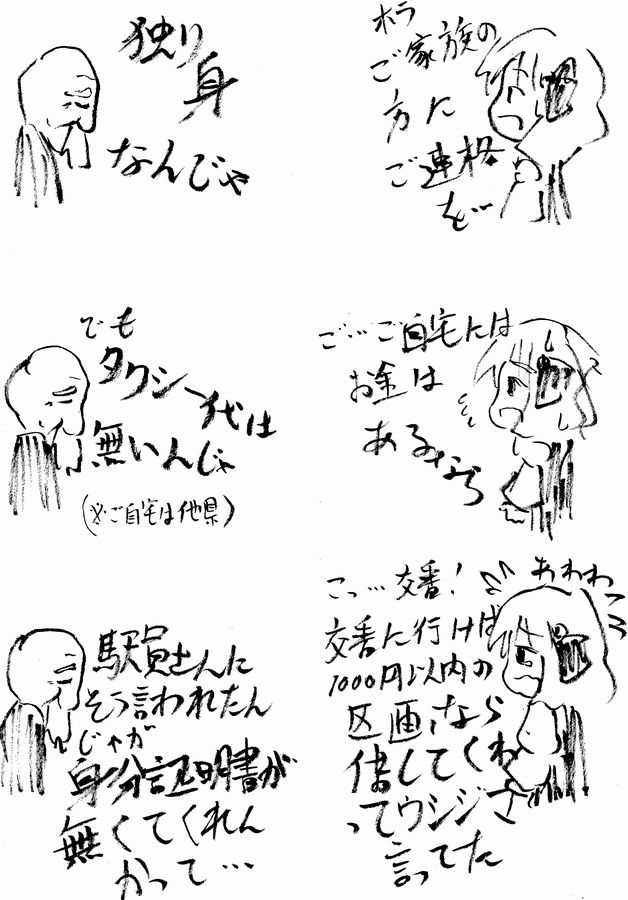 ホラ
ご家族の
方に
ご連格
を…
独り
身
なんじゃ
ご…ご自宅には
お金は
あるなら
でも
タクシー代は
無いんじゃ
(※ご自宅は他県)
あわわっ
こっ…交番!
交番に行けば
1000円以内の
区画なら
借してくれ
ってウシジ
言ってた
駅員さんに
そう言われたん
じゃが
身分証明書が
無くてくれん
かって…